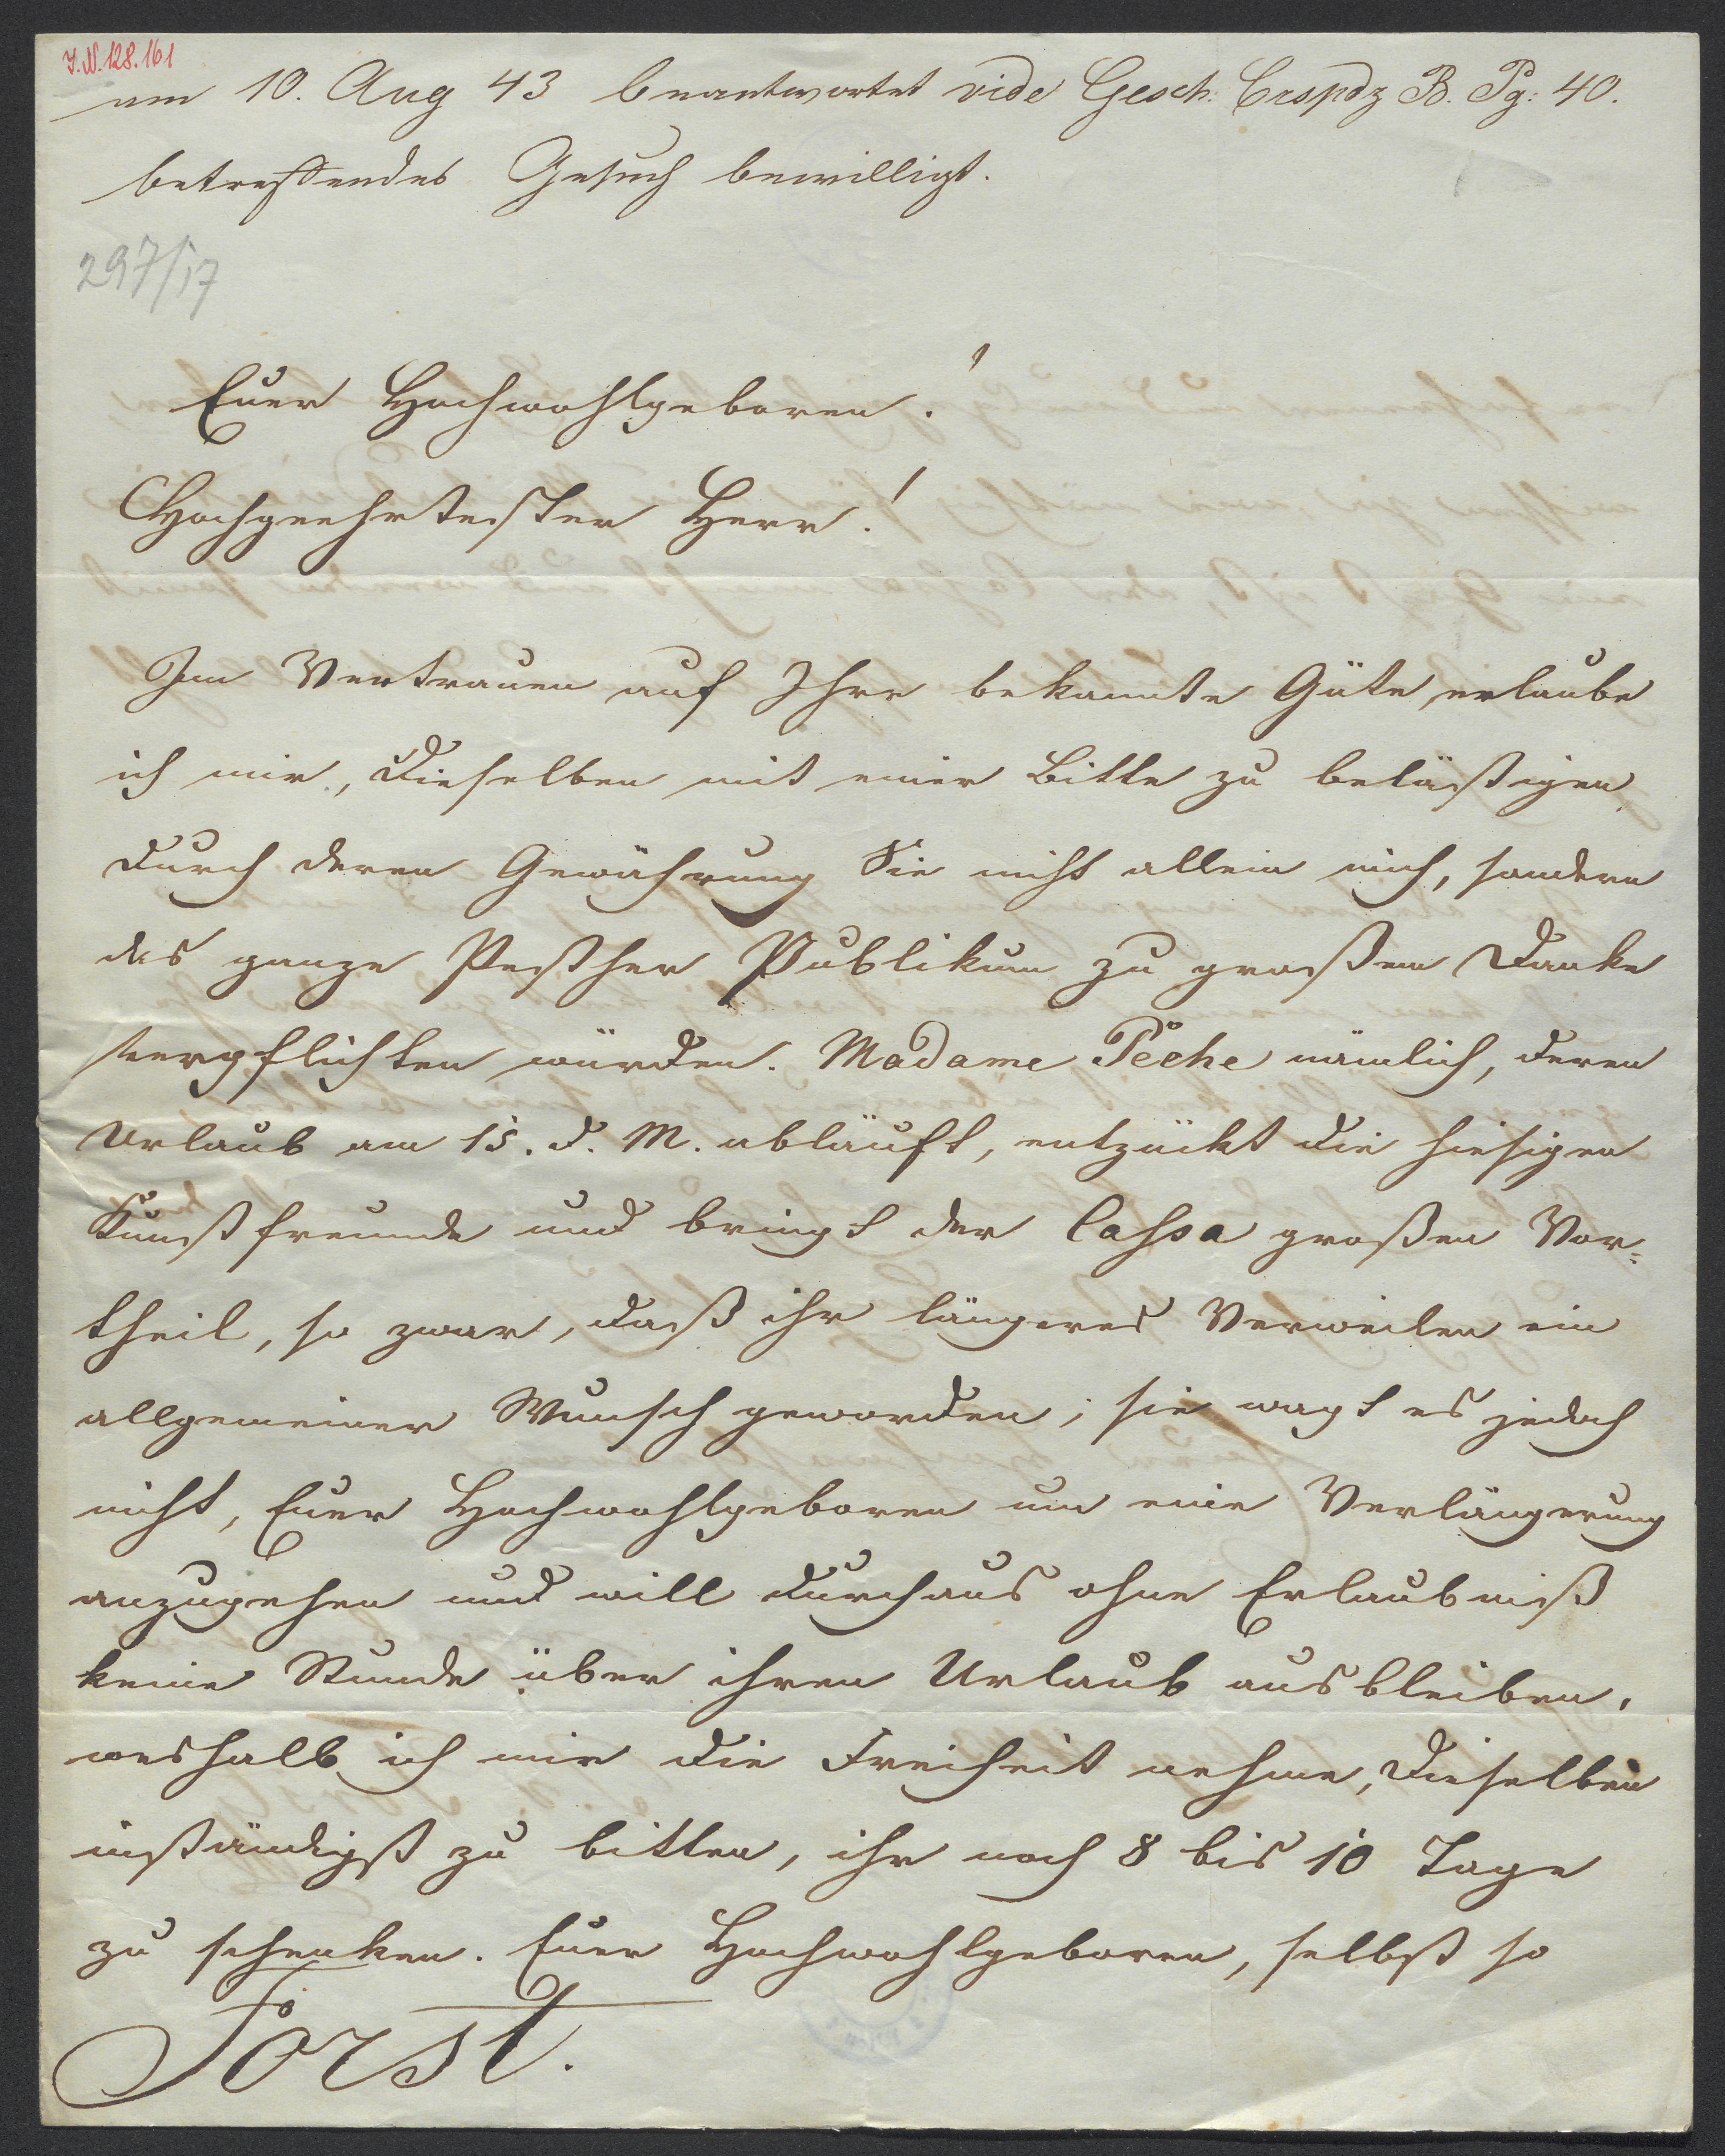 I.N.128.161
am 10. Aug 43 beantwortet vide Gesch. Crspdz B. Pg: 40.
betreffendes Gesuch bewilligt.
297/17
Euer Hochwohlgeboren!
Hochgeehrtester Herr!
Im Vertrauen auf Ihre bekannte Güte, erlaube
ich mir, Dieselben mit einer Bitte zu belästigen,
durch deren Gewährung Sie nicht allein mich, sondern
das ganze Pesther Publikum zu großem Danke
verpflichten würden. Madame Peche nämlich, deren
Urlaub am 15. d. M. abläuft, entzückt die hiesigen
Kunstfreunde und bringt der Cassa großen Vor=
theil, so zwar, daß ihr längeres Verweilen ein
allgemeiner Wunsch geworden; sie wagt es jedoch
nicht, Euer Hochwohlgeboren um eine Verlängerung
anzugehen und will durchaus ohne Erlaubniß
keine Stunde über ihren Urlaub ausbleiben,
weshalb ich mir die Freiheit nehme, Dieselben
inständigst zu bitten, ihr noch 8 bis 10 Tage
zu schenken. Euer Hochwohlgeboren, selbst so
Forst.